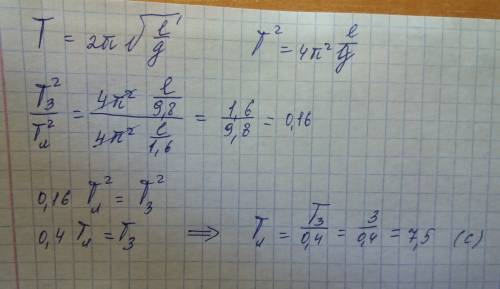 T = 2π √(l/g)    T² = 4π² l/g
T_з²/T_л² = (4π² l/9,8)/(4π² l/1,6) = 1,6/9,8 = 0,16
0,16 T_л² = T_з²
0,4 T_л = T_з ⟹ T_л = T_з/0,4 = 3/0,4 = 7,5 (с)